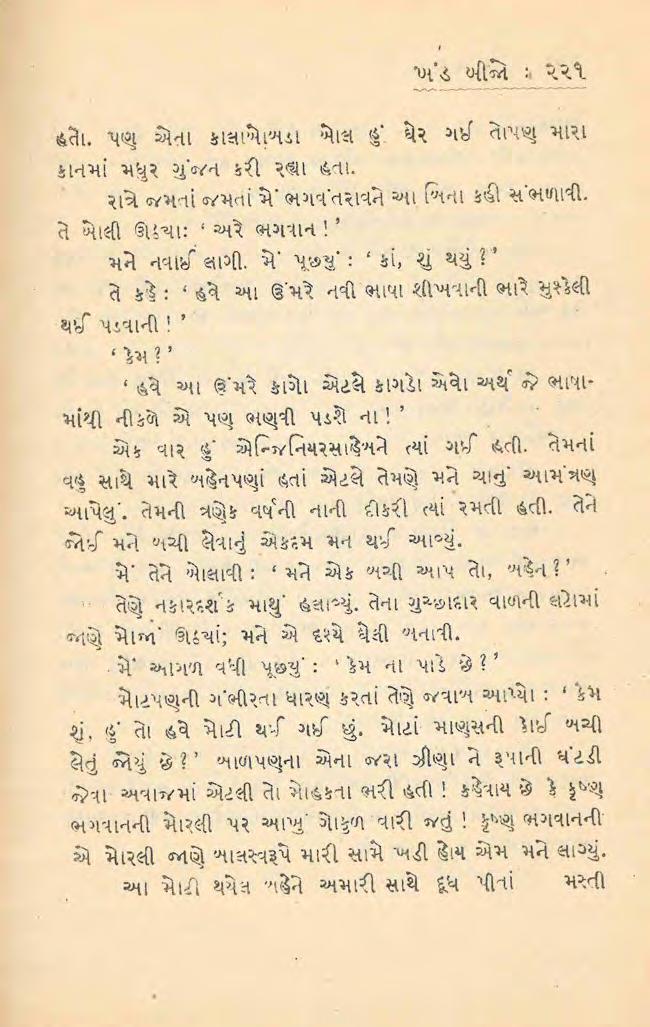 ખંડ બીજો : ૨૨૧
હતો. પણ એના કાલાબોબડા બોલ હું ઘેર ગઈ તોપણ મારા
કાનમાં મધુર ગુંજન કરી રહ્યા હતા.
રાત્રે જમતાં જમતાં મેં ભગવંતરાવને આ બિના કહી સંભળાવી.
તે બોલી ઊઠ્યાઃ ‘ અરે ભગવાન ! ’
મને નવાઈ લાગી. મેં પૂછ્યું : ‘ કાં, શું થયું ? ’
તે કહે : ‘ હવે આ ઉંમરે નવી ભાષા શીખવાની ભારે મુશ્કેલી
થઈ પડવાની ! ’
‘ કેમ ? ’
‘ હવે આ ઉંમરે કાગો એટલે કાગડો એવો અર્થ જે ભાષા-
માંથી નીકળે એ પણ ભણવી પડશે ના ! ’
એક વાર હું એન્જિનિયરસાહેબને ત્યાં ગઈ હતી. તેમનાં
વહુ સાથે મારે બહેનપણાં હતાં એટલે તેમણે મને ચાનું આમંત્રણ
આપેલું. તેમની ત્રણેક વર્ષની નાની દીકરી ત્યાં રમતી હતી. તેને
જોઈ મને બચી લેવાનું એકદમ મન થઈ આવ્યું.
મેં તેને બોલાવી : ‘ મને એક બચી આપ તો, બહેન ? ’
તેણે નકારદર્શક માથું હલાવ્યું. તેના ગુચ્છાદાર વાળની લટોમાં
જાણે મોજાં ઊઠ્યાં; મને એ દૃશ્યે ઘેલી બનાવી.
મેં આગળ વધી પૂછ્યું : ‘ કેમ ના પાડે છે ? ’
મોટપણની ગંભીરતા ધારણ કરતાં તેણે જવાબ આપ્યો : ‘ કેમ
શું, હું તો હવે મોટી થઈ ગઈ છું. મોટાં માણસની કોઈ બચી
લેતું જોયું છે ? ’ બાળપણના એના જરા ઝીણા ને રૂપાની ઘંટડી
જેવા અવાજમાં એટલી તો મોહકતા ભરી હતી ! કહેવાય છે કે કૃષ્ણ
ભગવાનની મોરલી પર આખું ગોકુળ વારી જતું ! કૃષ્ણ ભગવાનની
એ મોરલી જાણે બાલસ્વરૂપે મારી સામે ખડી હોય એમ મને લાગ્યું.
આ મોટી થયેલ બહેને અમારી સાથે દૂધ પીતાં મસ્તી